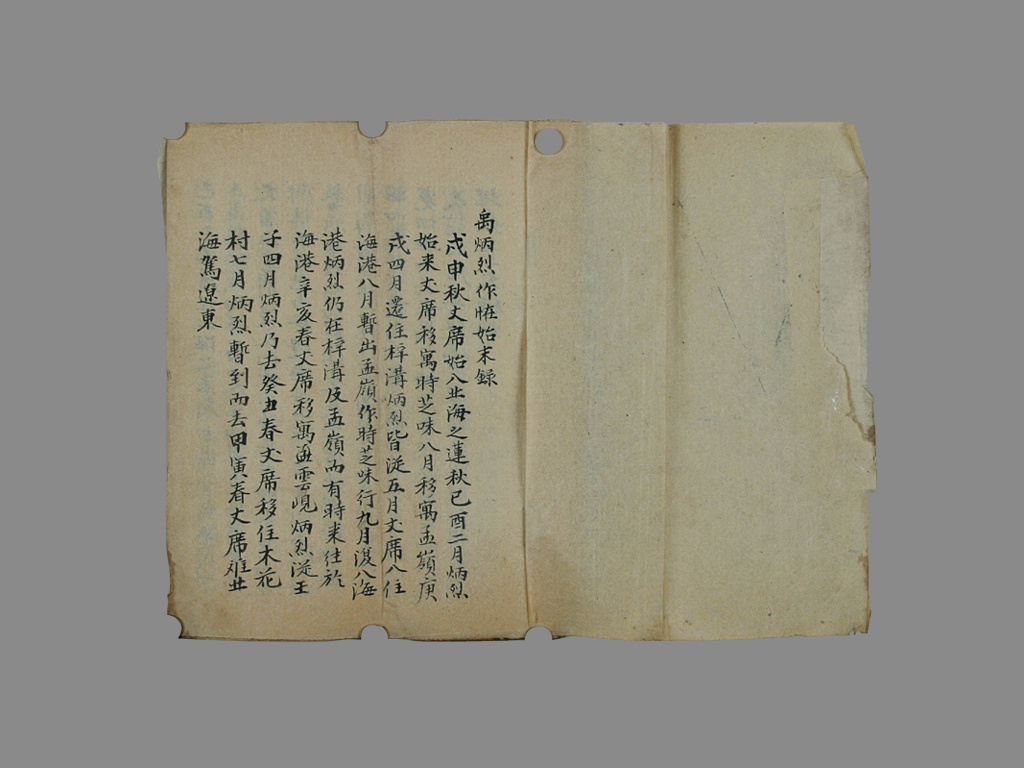 禹炳烈作恠始末錄
戊申秋丈席始入北海之蓮秋己酉二月炳烈
始来丈席移寓時芝味八月移寓孟嶺庚
戌四月還住梓溝炳烈皆從五月丈席入住
海港八月暫出孟嶺作時芝味行九月復入海
港炳烈仍在梓溝及孟嶺而有時来往於
海港辛亥春丈席移寓雲峴炳烈從壬
子四月炳烈乃去癸丑春丈席移住木花
村七月炳烈暫到而去甲寅春丈席难北
海駕遼東